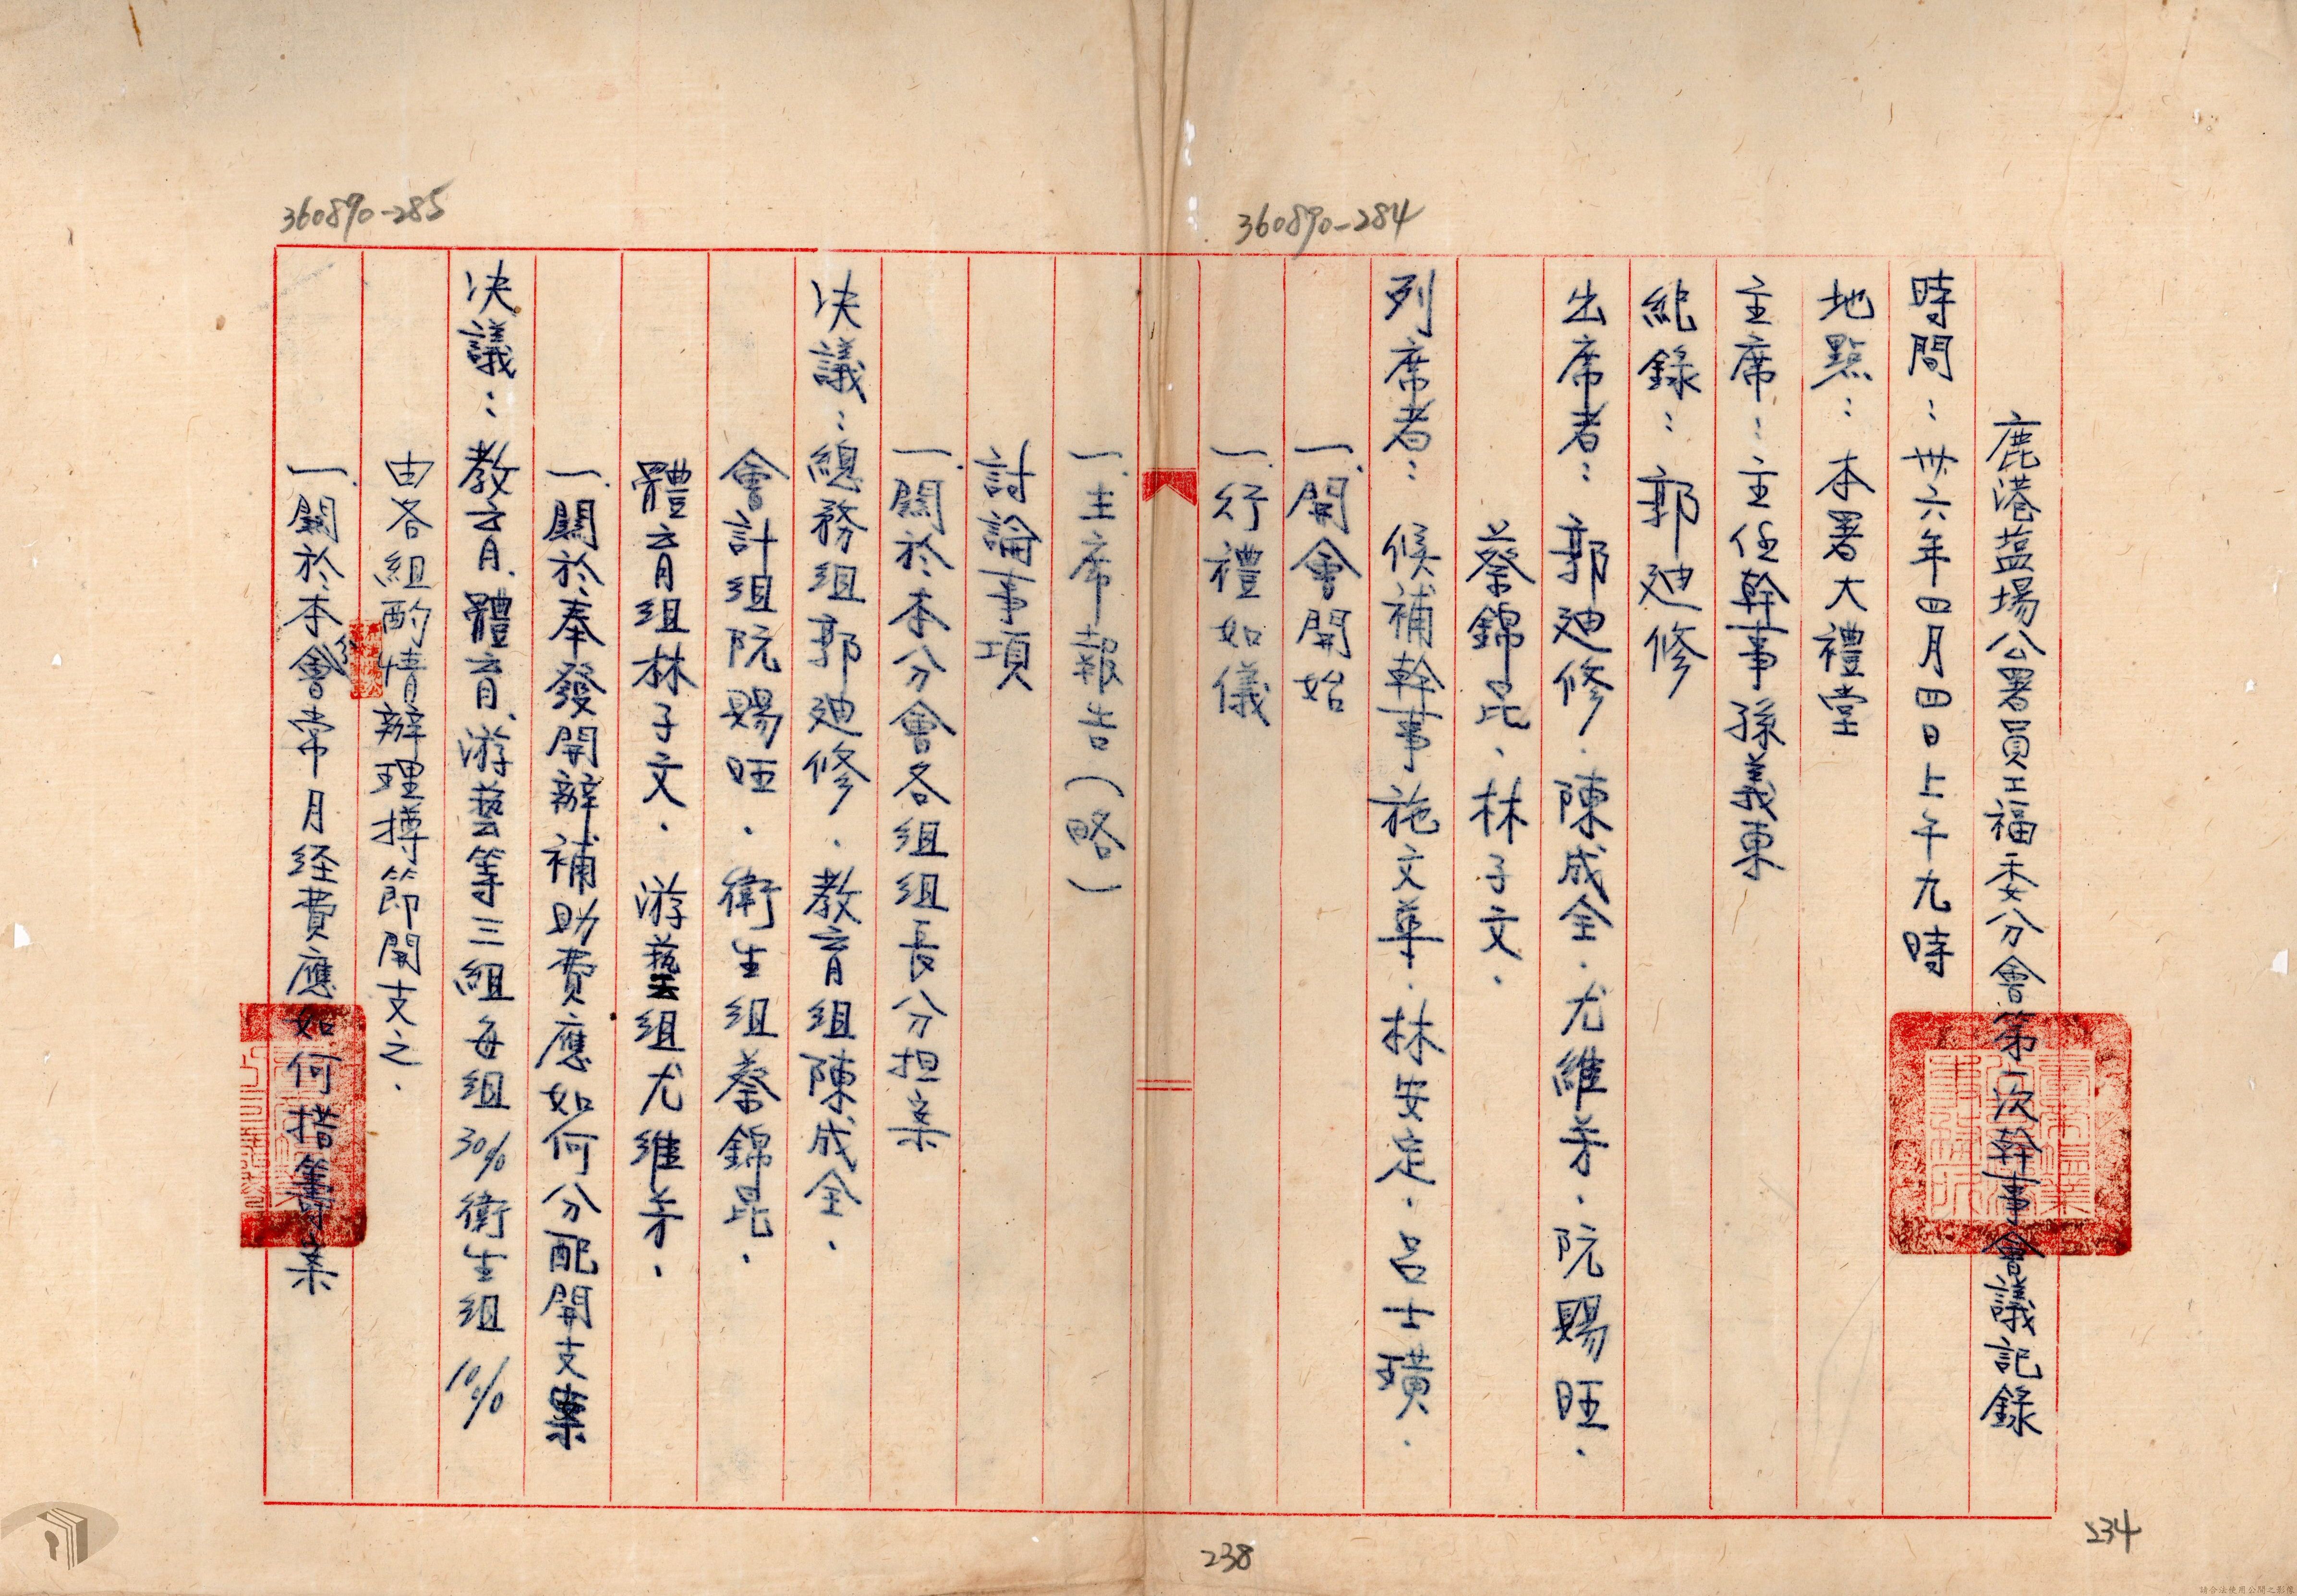 360890-284
鹿港盐場公署員工福委分會第一次幹事會議記錄
時間：卅六年四月四日上午九時
地點：本署大禮堂
主席：主任幹事孫義東
紀錄：郭廸修
出席者：郭廸修．陳成全．尤維芳．阮賜旺．
蔡錦昆、林子文．
列席者：候補幹事施文華．林安定．呂士璜．
一．開會開始
一．行禮如儀
360890-285
一．主席報告（略）
討論事項
一．關於本分會各組組長分担案
決議：總務組郭廸修．教育組陳成全．
會計組阮賜旺．衛生組蔡錦昆．
體育組林子文．游藝組尤維芳．
一．關於奉發開辦補助費應如何分配開支案
決議：教育、體育、游藝等三組每組30%衛生組10%
由各組酌情辦理撙節開支之．
一．關於本分會常月経費應如何措籌案
238
234
請合法使用公開之影像